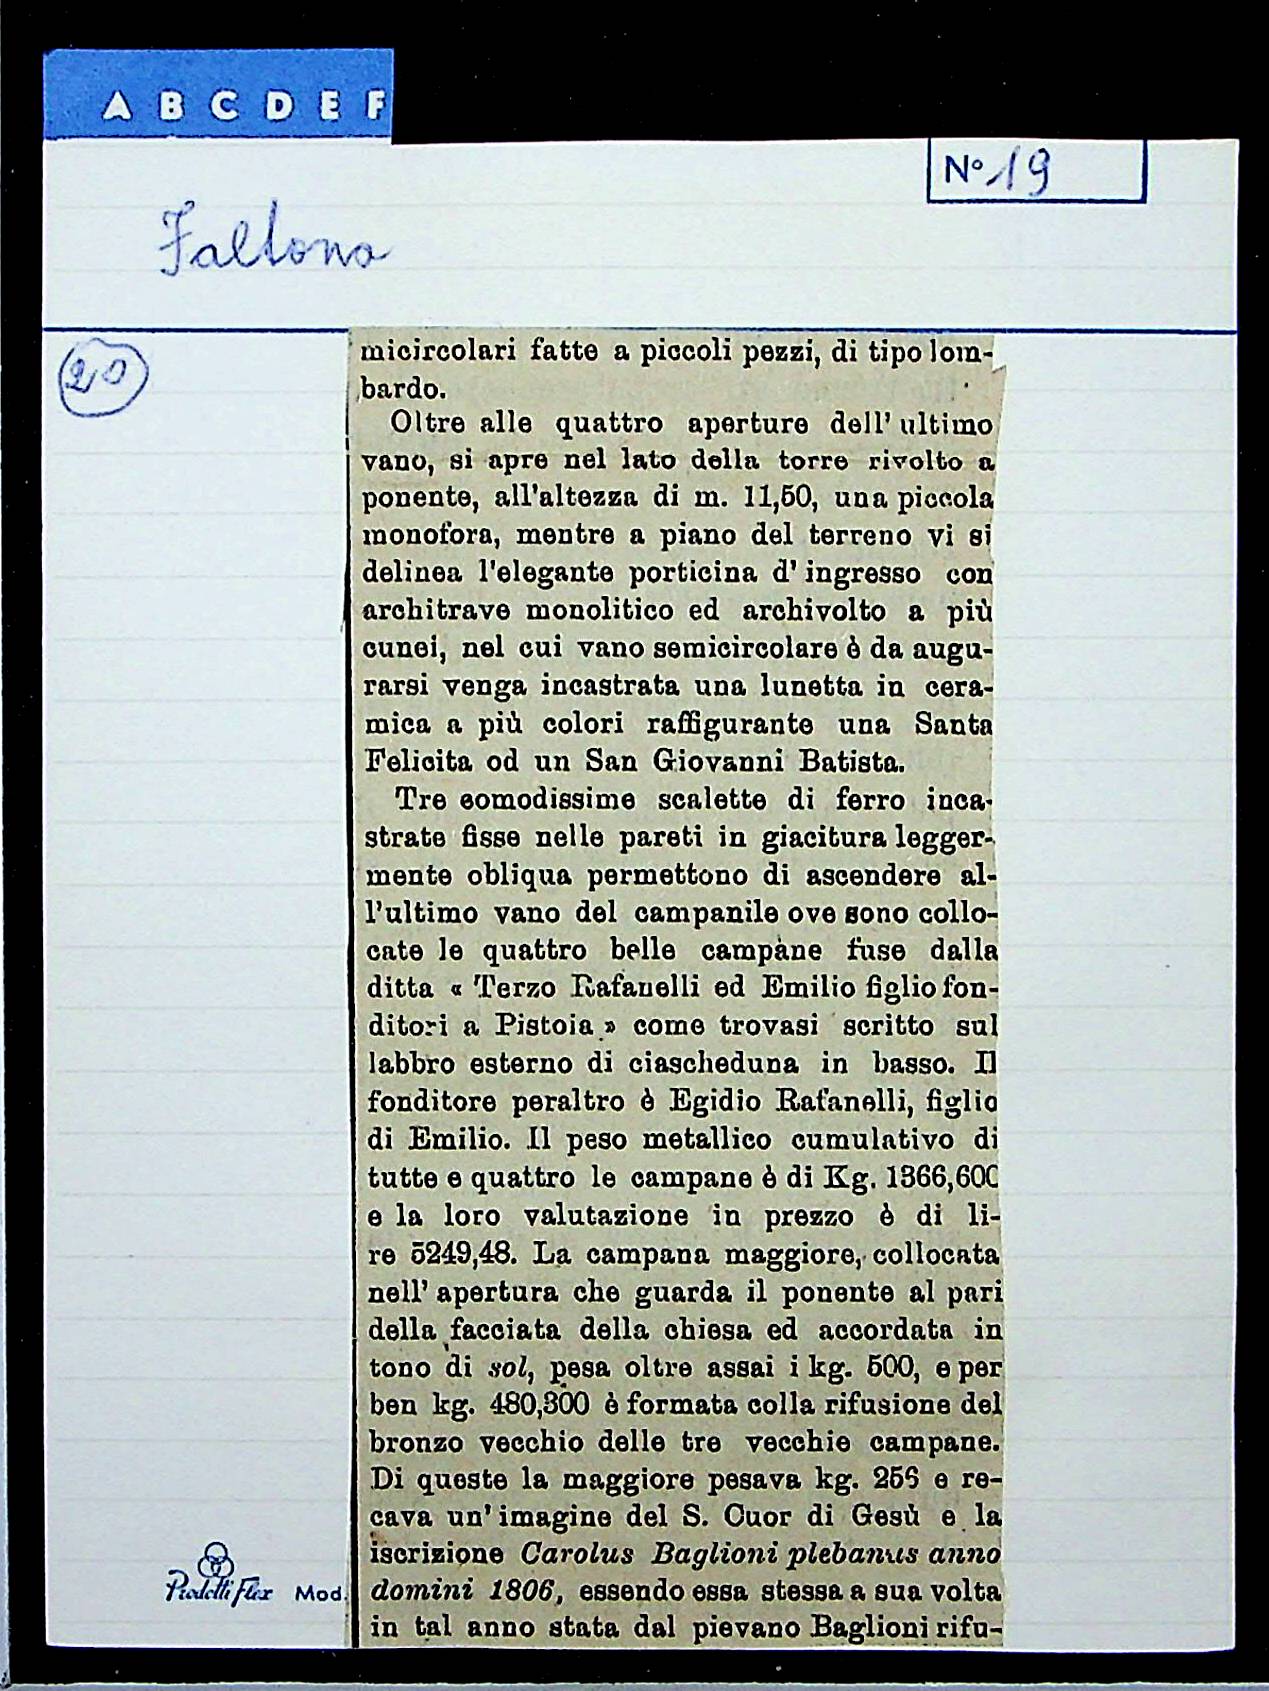 A B C D E F
Nº 19
Faltona
20
micircolari fatte a piccoli pezzi, di tipo lom-
bardo.
Oltre alle quattro aperture dell' ultimo
vano, si apre nel lato della torre rivolto a
ponente, all'altezza di m. 11,50, una piccola
monofora, mentre a piano del terreno vi si
delinea l'elegante porticina d' ingresso con
architrave monolitico ed archivolto a più
cunei, nel cui vano semicircolare è da augu-
rarsi venga incastrata una lunetta in cera-
mica a più colori raffigurante una Santa
Felicita od un San Giovanni Batista.
Tre comodissime scalette di ferro inca-
strate fisse nelle pareti in giacitura legger-
mente obliqua permettono di ascendere al-
l'ultimo vano del campanile ove sono collo-
cate le quattro belle campane fuse dalla
ditta « Terzo Rafanelli ed Emilio figlio fon-
ditori a Pistoia » come trovasi scritto sul
labbro esterno di ciascheduna in basso. Il
fonditore peraltro è Egidio Rafanelli, figlio
di Emilio. Il peso metallico cumulativo di
tutte e quattro le campane è di Kg. 1366,600
e la loro valutazione in prezzo è di li-
re 5249,48. La campana maggiore, collocata
nell' apertura che guarda il ponente al pari
della facciata della chiesa ed accordata in
tono di sol, pesa oltre assai i kg. 500, e per
ben kg. 480,300 è formata colla rifusione del
bronzo vecchio delle tre vecchie campane.
Di queste la maggiore pesava kg. 256 e re-
cava un' imagine del S. Cuor di Gesù e la
iscrizione Carolus Baglioni plebanus anno
domini 1806, essendo essa stessa a sua volta
in tal anno stata dal pievano Baglioni rifu-
Flex Mod.